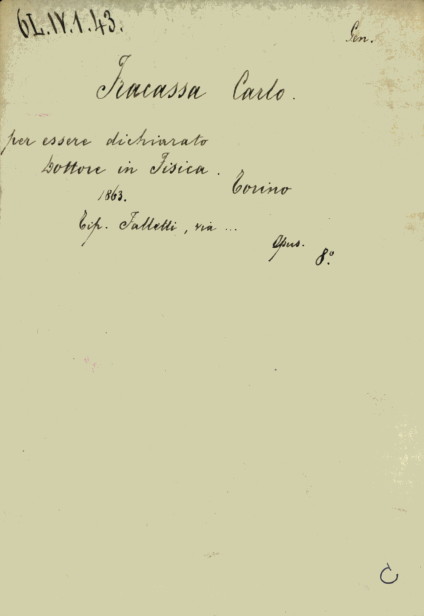 6L.IV.1.43.
Gen.
Fracassa Carlo.
per essere dichiarato
Dottore in Fisica.
Torino
1863.
Tip. Falletti, via ...
Opus.
8°.
C